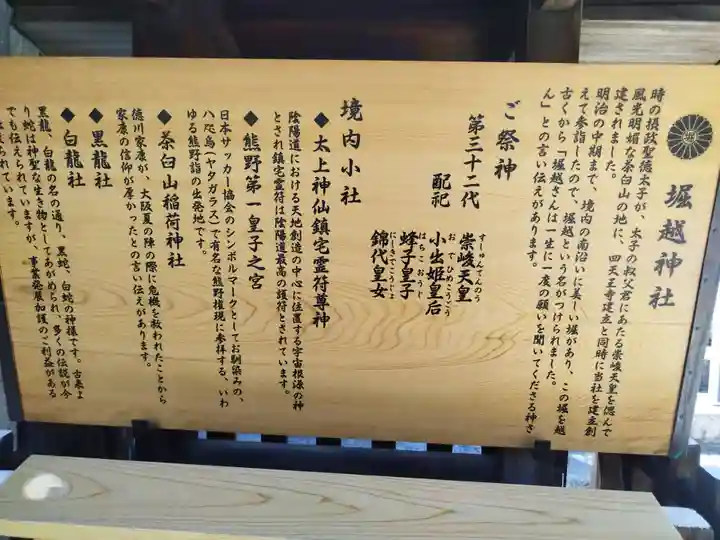 堀越神社
時の摂政聖徳太子が、太子の叔父君にあたる崇峻天皇を偲んで
風光明媚な茶臼山の地に、四天王寺建立と同時に当社を建立創
建されました。
明治の中期まで、境内の南沿いに美しい堀があり、この堀を越
えて参詣したので、堀越という名がつけられました。
古くから「堀越さんは一生に一度の願いを聞いてくださる神さ
ん」との言い伝えがあります。
ご祭神
第三十二代 崇峻天皇
すしゅんてんのう
配祀 小出姫皇后
おでひめこうごう
蜂子皇子
はちこおうじ
錦代皇女
にしきてこうじょ
境内小社
◆太上神仙鎮宅霊符尊神
陰陽道における天地創造の中心に位置する宇宙根源の神
とされ鎮宅霊符は陰陽道最高の護符とされています。
◆熊野第一皇子之宮
日本サッカー協会のシンボルマークとしてお馴染みの、
八咫烏(ヤタガラス)で有名な熊野権現に参拝する、いわ
ゆる熊野詣の出発地です。
◆茶臼山稲荷神社
徳川家康が、大阪夏の陣の際に危機を救われたことから
家康の信仰が厚かったとの言い伝えがあります。
◆黒龍社
◆白龍社
黒龍、白龍の名の通り、黒蛇、白蛇の神様です。古来よ
り蛇は神聖な生き物としてあがめられ、多くの伝説が今
でも伝えられていますが、事業発展加護のご利益がある
られています。